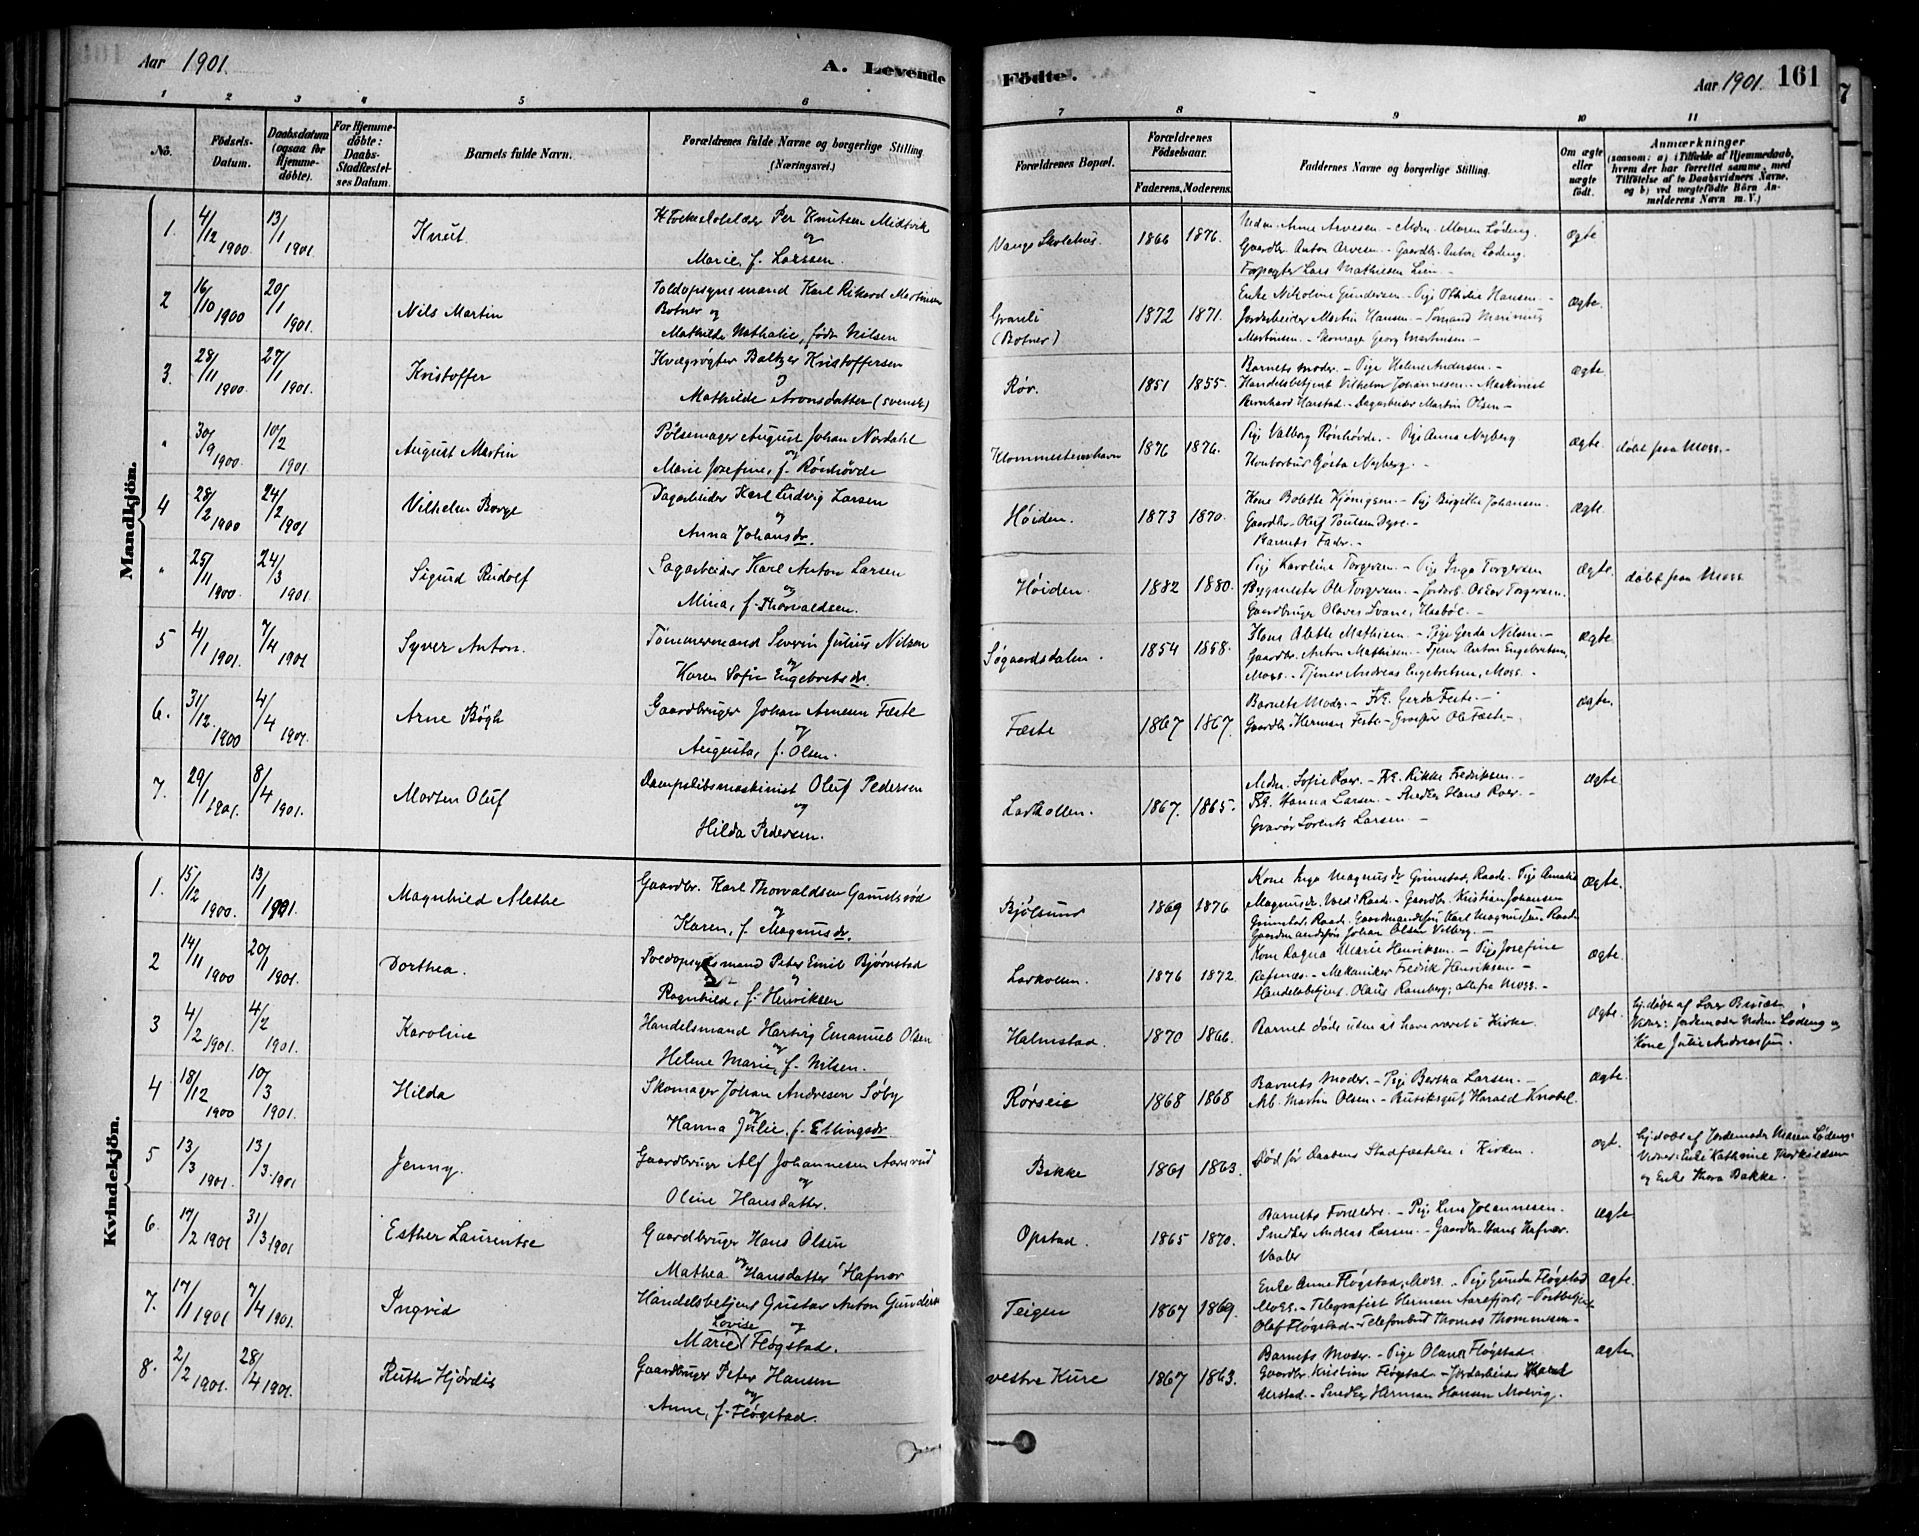 Aar 1901.
A. Levende
Födte.
Aar 1901.
161
1 2 3 4 5 6 7 8 9 10 11
No.
Födsels-Datum.
Daabsdatum (ogsaa for Hjemme-döbte).
For Hjemme-döbte: Daabs-Stadfæstelses Datum.
Barnets fulde Navn.
Forældrenes fulde Navne og borgerlige Stilling (Næringsvei.)
Forældrenes Bopæl.
Forældrenes Födselsaar.
Faderens. Moderens.
Faddernes Navne og borgerlige Stilling.
Om ægte eller uægte födt.
Anmærkninger
(saasom: a) i Tilfælde af Hjemmedaab, hvem der har forrettet samme, med Tilföielse af to Daabsvidners Navne, og b) ved uægtefödte Börn Anmelderens Navn m. V.)
Mandkjön.
1. 4/12 1900 13/1 1901. Knut Per Knutsen Midtvik
og
Marie, f. Larssen.
Vangs Skolehus. 1866 1876. Mdm. Anne Arvesen – Mdm. Maren Lödeng.
Gaardbr. Anton Arvesen – Gaardbr. Anton Lödeng.
Forpagter Lars Mathiesen Lien –
ægte
2 16/10 1900 20/1 1901. Nils Martin Toldopsynsmand Karl Rikard Martinsen
Botner og
Mathilde Nathalie, født Nilsen
Granli
(Botner) 1872 1871. Enke Nikoline Gundersen – Pige Othilie Hansen –
Jordarbeider Martin Hansen – Sömand Marinius
Martinsen – Skomager Georg Martinsen –
ægte.
3. 28/11 1900 27/1 1901. Kristoffer Kvægrøgter Baltzer Kristoffersen
og
Mathilde Aronsdatter (svensk)
Rör. 1851 1855. Barnets Moder. – Pige Helene Andersen. –
Handelsbetjent Vilhelm Johannesen. Maskinist
Bernhard Harstad. – Dagarbeider Martin Olsen –
ægte
" 30/9 1900. 10/2 1901. August Martin Pølsemager August Johan Nordahl
og
Marie Josefine, f. Rönhövde
Klommestenshavn 1876 1876. Pige Valborg Rönhövde. – Pige Anna Nyberg
Kontorbud Gösta Nyberg. –
ægte. döbt fra Moss. –
4 28/2 1900 24/2 1901 Vilhelm Borge Dagarbeider Karl Ludvig Larsen
og
Anna Johansdr.
Höiden. 1873 1870. Kone Bolette Kjönigsen. – Pige Birgitte Johansen.
Gaardbr. Oluf Poulsen Dyre. –
Barnets Fader. –
ægte.
" 25/11 1900. 24/3 1901. Sigurd Rudolf Sagarbeider Karl Anton Larsen
og
Mina, f. Thorvaldsen.
Höiden. 1882 1880. Pige Karoline Torgersen. – Pige Inga Torgersen
Bygmester Ole Torgersen. – Jordarb. Oskar Torgersen.
Gaardbruger Olaves Svane, Hasböl. –
ægte. döbt fra Moss
5 4/1 1901. 7/4 1901 Syver Anton. Tömmermand Severin Julius Nilsen
og
Karen Sofie Engebretsdr.
Søgaardsdalen. 1854 1858. Alette Mathisen. – Pige Gerda Nilsen. –
Gaardbr. Anton Mathisen – Tjener Anton Engebretsen,
Moss. – Tjener Andreas Engebretsen, Moss. –
ægte
6. 31/12. 1900 4/4 1901. Arne Bögh Gaardbruger Johan Arnesen Fæste
og
Augusta, f. Olsen.
Fæste 1867 1867. Barnets Moder. – Frk. Gerda Feste. –
Gaardbr. Herman Feste – Grosserer Ole Fæste –.
ægte.
7. 29/1 1901. 8/4 1901. Morten Oluf Dampskibsmaskinist Oluf Pedersen
og
Hilda Pedersen.
Larkollen. 1867. 1865. Mdm. Sofie Roer. – Frk. Rikke Fredriksen. –
Frk. Hanna Larsen. – Snedker Hans Roer. –
Gravör Lorents Larsen. –
ægte
Kvindekjön.
1. 15/12 1900. 13/1 1901. Magnhild Alethe Gaardbr. Karl Thorvaldsen Gamlsröd
og
Karen, f. Magnusdr.
Bjölsund 1869 1876 Kone Inga Magnusdr Grimstad, Raade. Pige Amalie
Magnusdr. Raade. – Gaardbr. Kristian Johansen
Grimstad, Raade. Gaardmandssön Karl Magnussen, Raade
Gaardmandssön Johan Olsen Vilberg. –
ægte.
2 14/11 1900. 20/1 1901. Dorthea. Peter Emil Bjørnstad
og
Ragnhild, f. Henriksen
Larkollen. 1876 1872. Kone Ragna Marie Henriksen. – Pige Josefine
Refsnes. – Mekaniker Fredrik Henriksen. –
Handelsbetjent Olaus Ramberg; alle fra Moss. –
ægte.
3 4/2 1901. 4/2 1901. Karoline Handelsmand Hartvig Emanuel Olsen
og
Helene Marie, f. Nilsen.
Halmstad. 1870 1866. Barnet døde uden at have været i Kirke
ægte. hj.döbt af
Vidner: Jordemoder Maren Lödeng og
Kone Julie
4 18/12 1900 10/3 1901. Hilda Skomager Johan Andresen Söby
og
Hanna Julie, f. Ellingsdr
Rørseie 1868 1868 Barnets Moder. – Pige Bertha Larsen. –
Arb. Martin Olsen. – Butiksgut Harald Knobel.
ægte.
5 13/3 1901. 13/3 1901 Jenny. Gaardbruger Alf Johannesen Aarsrud
og
Oline Hansdatter.
Bakke 1861 1863. Död för Daabens Stadfæstelse i Kirken.
ægte. hj.döbt af Jordemoder Maren Lödeng.
Vidner: Enke Kathrine Thorkildsen
og Enke Thora Bakke.
6. 17/2 1901 31/3 1901 Esther Laurentse Gaardbruger Hans Olsen
og
Mathea Hansdatter Hafnor
Opstad. 1865 1870. Barnets Forældre. – Pige Lina Johannesen.
Snedker Andreas Larsen. – Gaardbr. Hans Hafnor.
Vaaler
ægte
7. 17/1 1901 7/4 1901. Ingvid Handelsbetjent Gustav Anton Gundersen
Lovise og
Marie Fløgstad.
Teigen 1867 1869. Enke Anne Fløgstad, Moss. – Pige Gunda Fløgstad
Moss. – Telegrafist Herman Aarefjord, – Postbetjent
Olaf Fløgstad. – Telefonbud Thomas Thommesen –
ægte.
8. 2/2 1901. 28/4 1901. Ruth Hjördis Gaardbruger Peter Hansen
og
Anne, f. Fløgstad.
vestre Kure 1867 1863. Barnets Moder – Pige Olava Fløgstad.
Gaardbr. Kristian Fløgstad – Jordarbeider
Urstad. – Snedker Herman Hansen Molvig.
ægte.